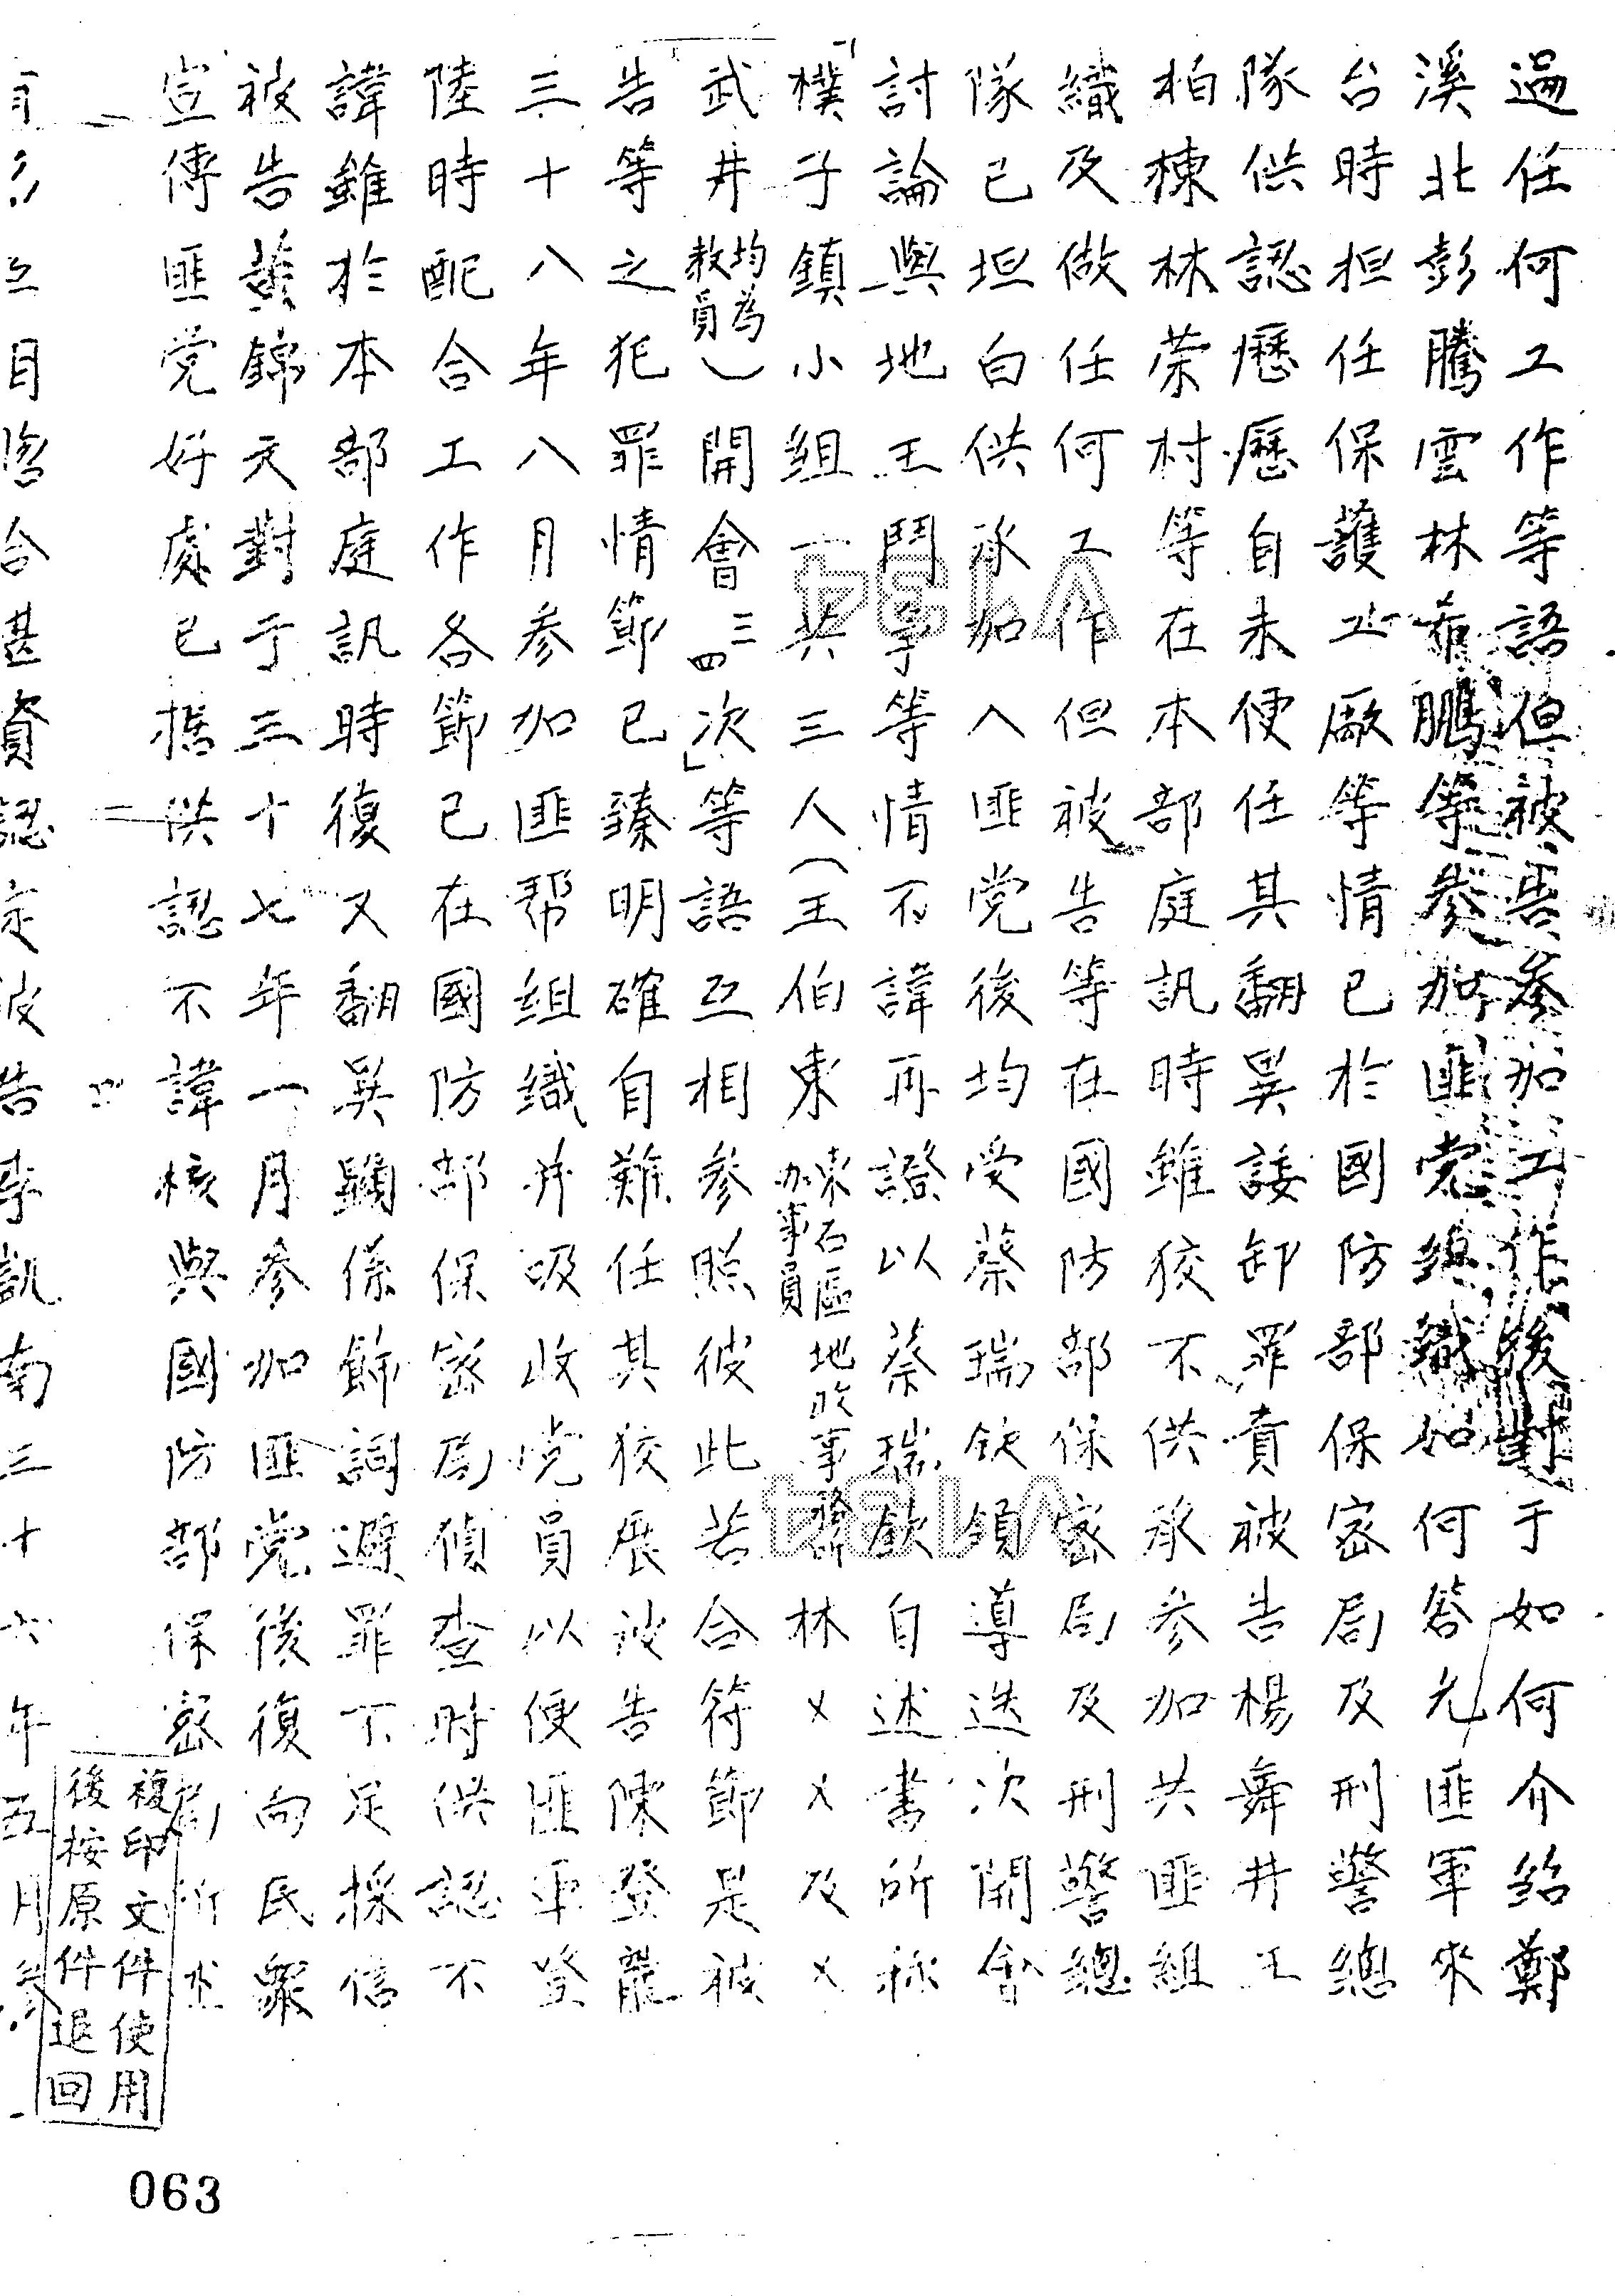 過任何工作等語但被告參加工作後對于如何介紹鄭
溪北彭騰雲林有鵬等參加匪党組織如何答允匪軍來
台時担任保護工廠等情已於國防部保密局及刑警總
隊供認歷歷自未便任其翻異諉卸罪責被告楊舞井王
柏棟林荣村等在本部庭訊時雖狡不供承參加共匪組
織及做任何工作但被告等在國防部保密局及刑警總
隊已坦白供承加入匪党後均受蔡瑞欽領導迭次開會
討論與地王鬥爭等情不諱再證以蔡瑞欽自述書所称
「樸子鎮小組一共三人(王伯東東石區地政事務林×××及×
加事員
武井均為教員)開會三四次」等語互相參照彼此若合符節是被
告等之犯罪情節已臻明確自難任其狡展被告陳登龍
三十八年八月参加匪帮組織并吸收党員以便匪軍登
陸時配合工作各節已在國防部保密局偵查時供認不
諱雖於本部庭訊時復又翻異顯係飾詞避罪不足採信
被告黃錦天對于三十七年一月參加匪党後復向民眾
宣傳匪党好處已據供認不諱核與國防部保密局所述
目 合甚資認定被告李訊南三十六年五月
複印文件使用
後按原件退回
063